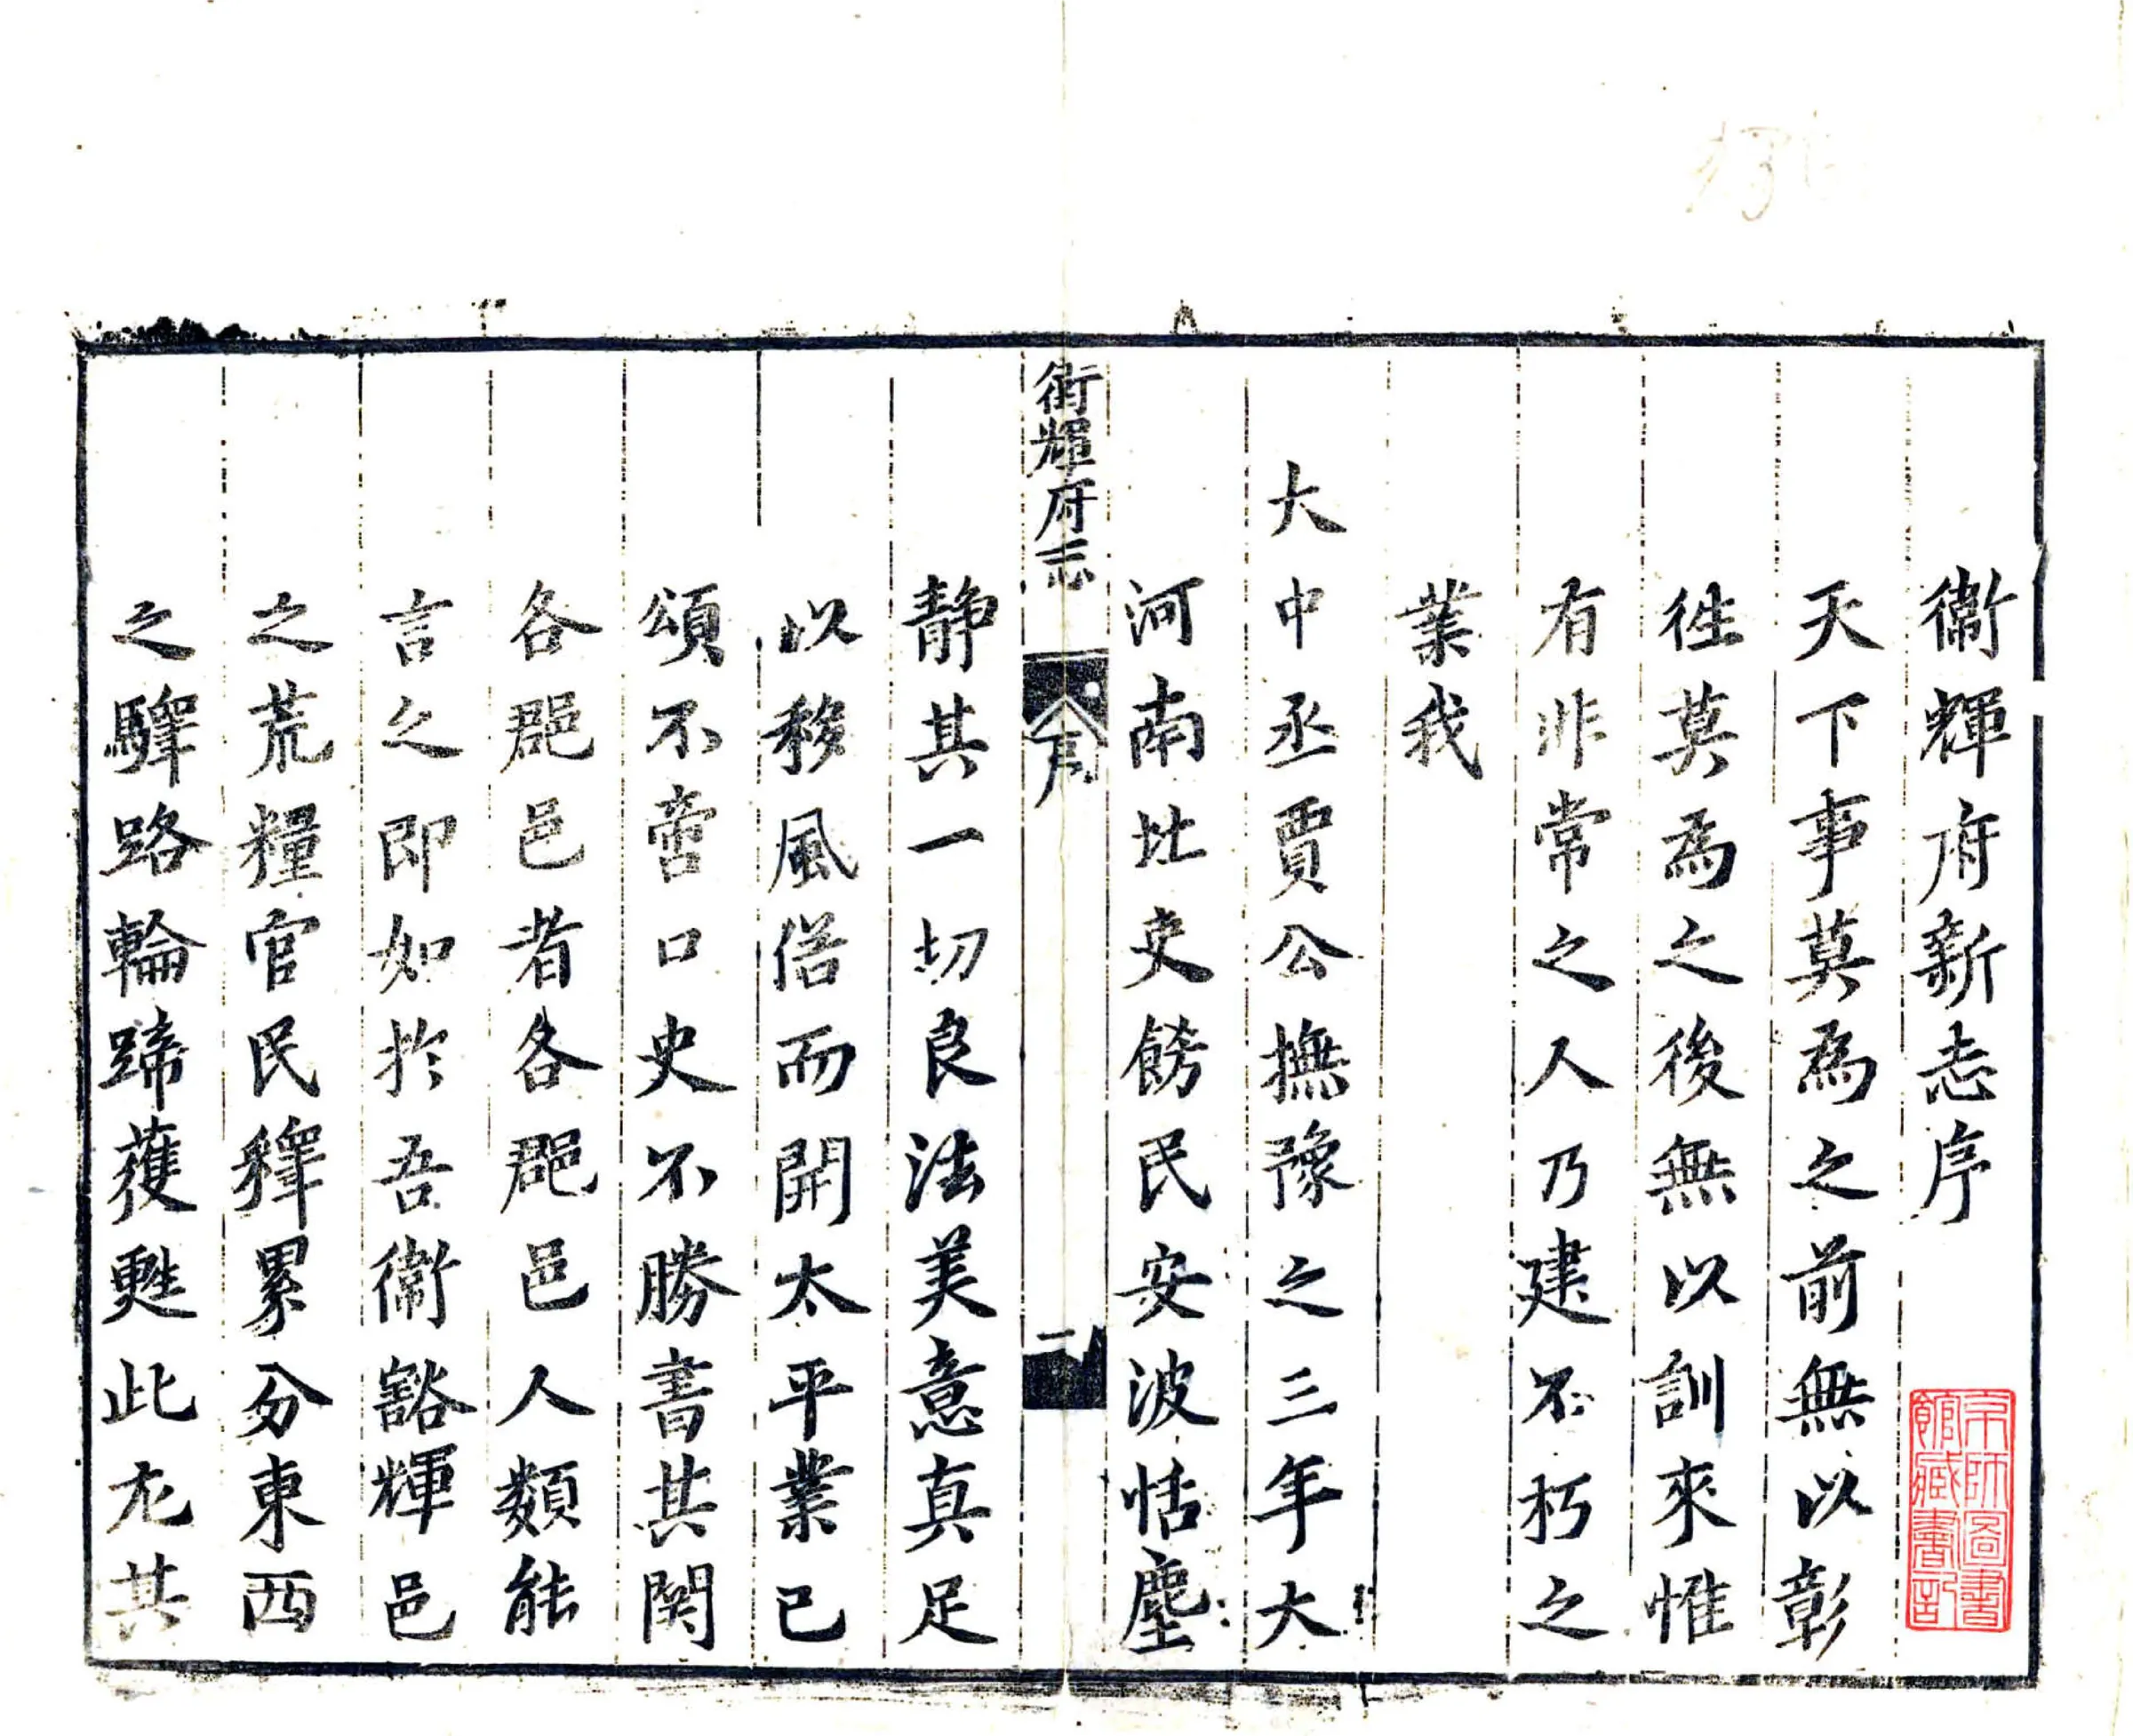 衞輝府新志序
天下事莫為之前無以彰
徃莫為之後無以訓來惟
有非常之人乃建不朽之
業我
大中丞賈公撫豫之三年大
河南北吏餝民安波恬塵
靜其一切良法美意真足
以移風俗而開太平業已
頌不啻口史不勝書其関
各郡邑者各郡邑人類能
言之即如扵吾衞豁輝邑
之荒糧官民釋累分東西
之驛路輪蹄獲甦此尤其
衞輝府志
序
一
京師圖書
館藏書記